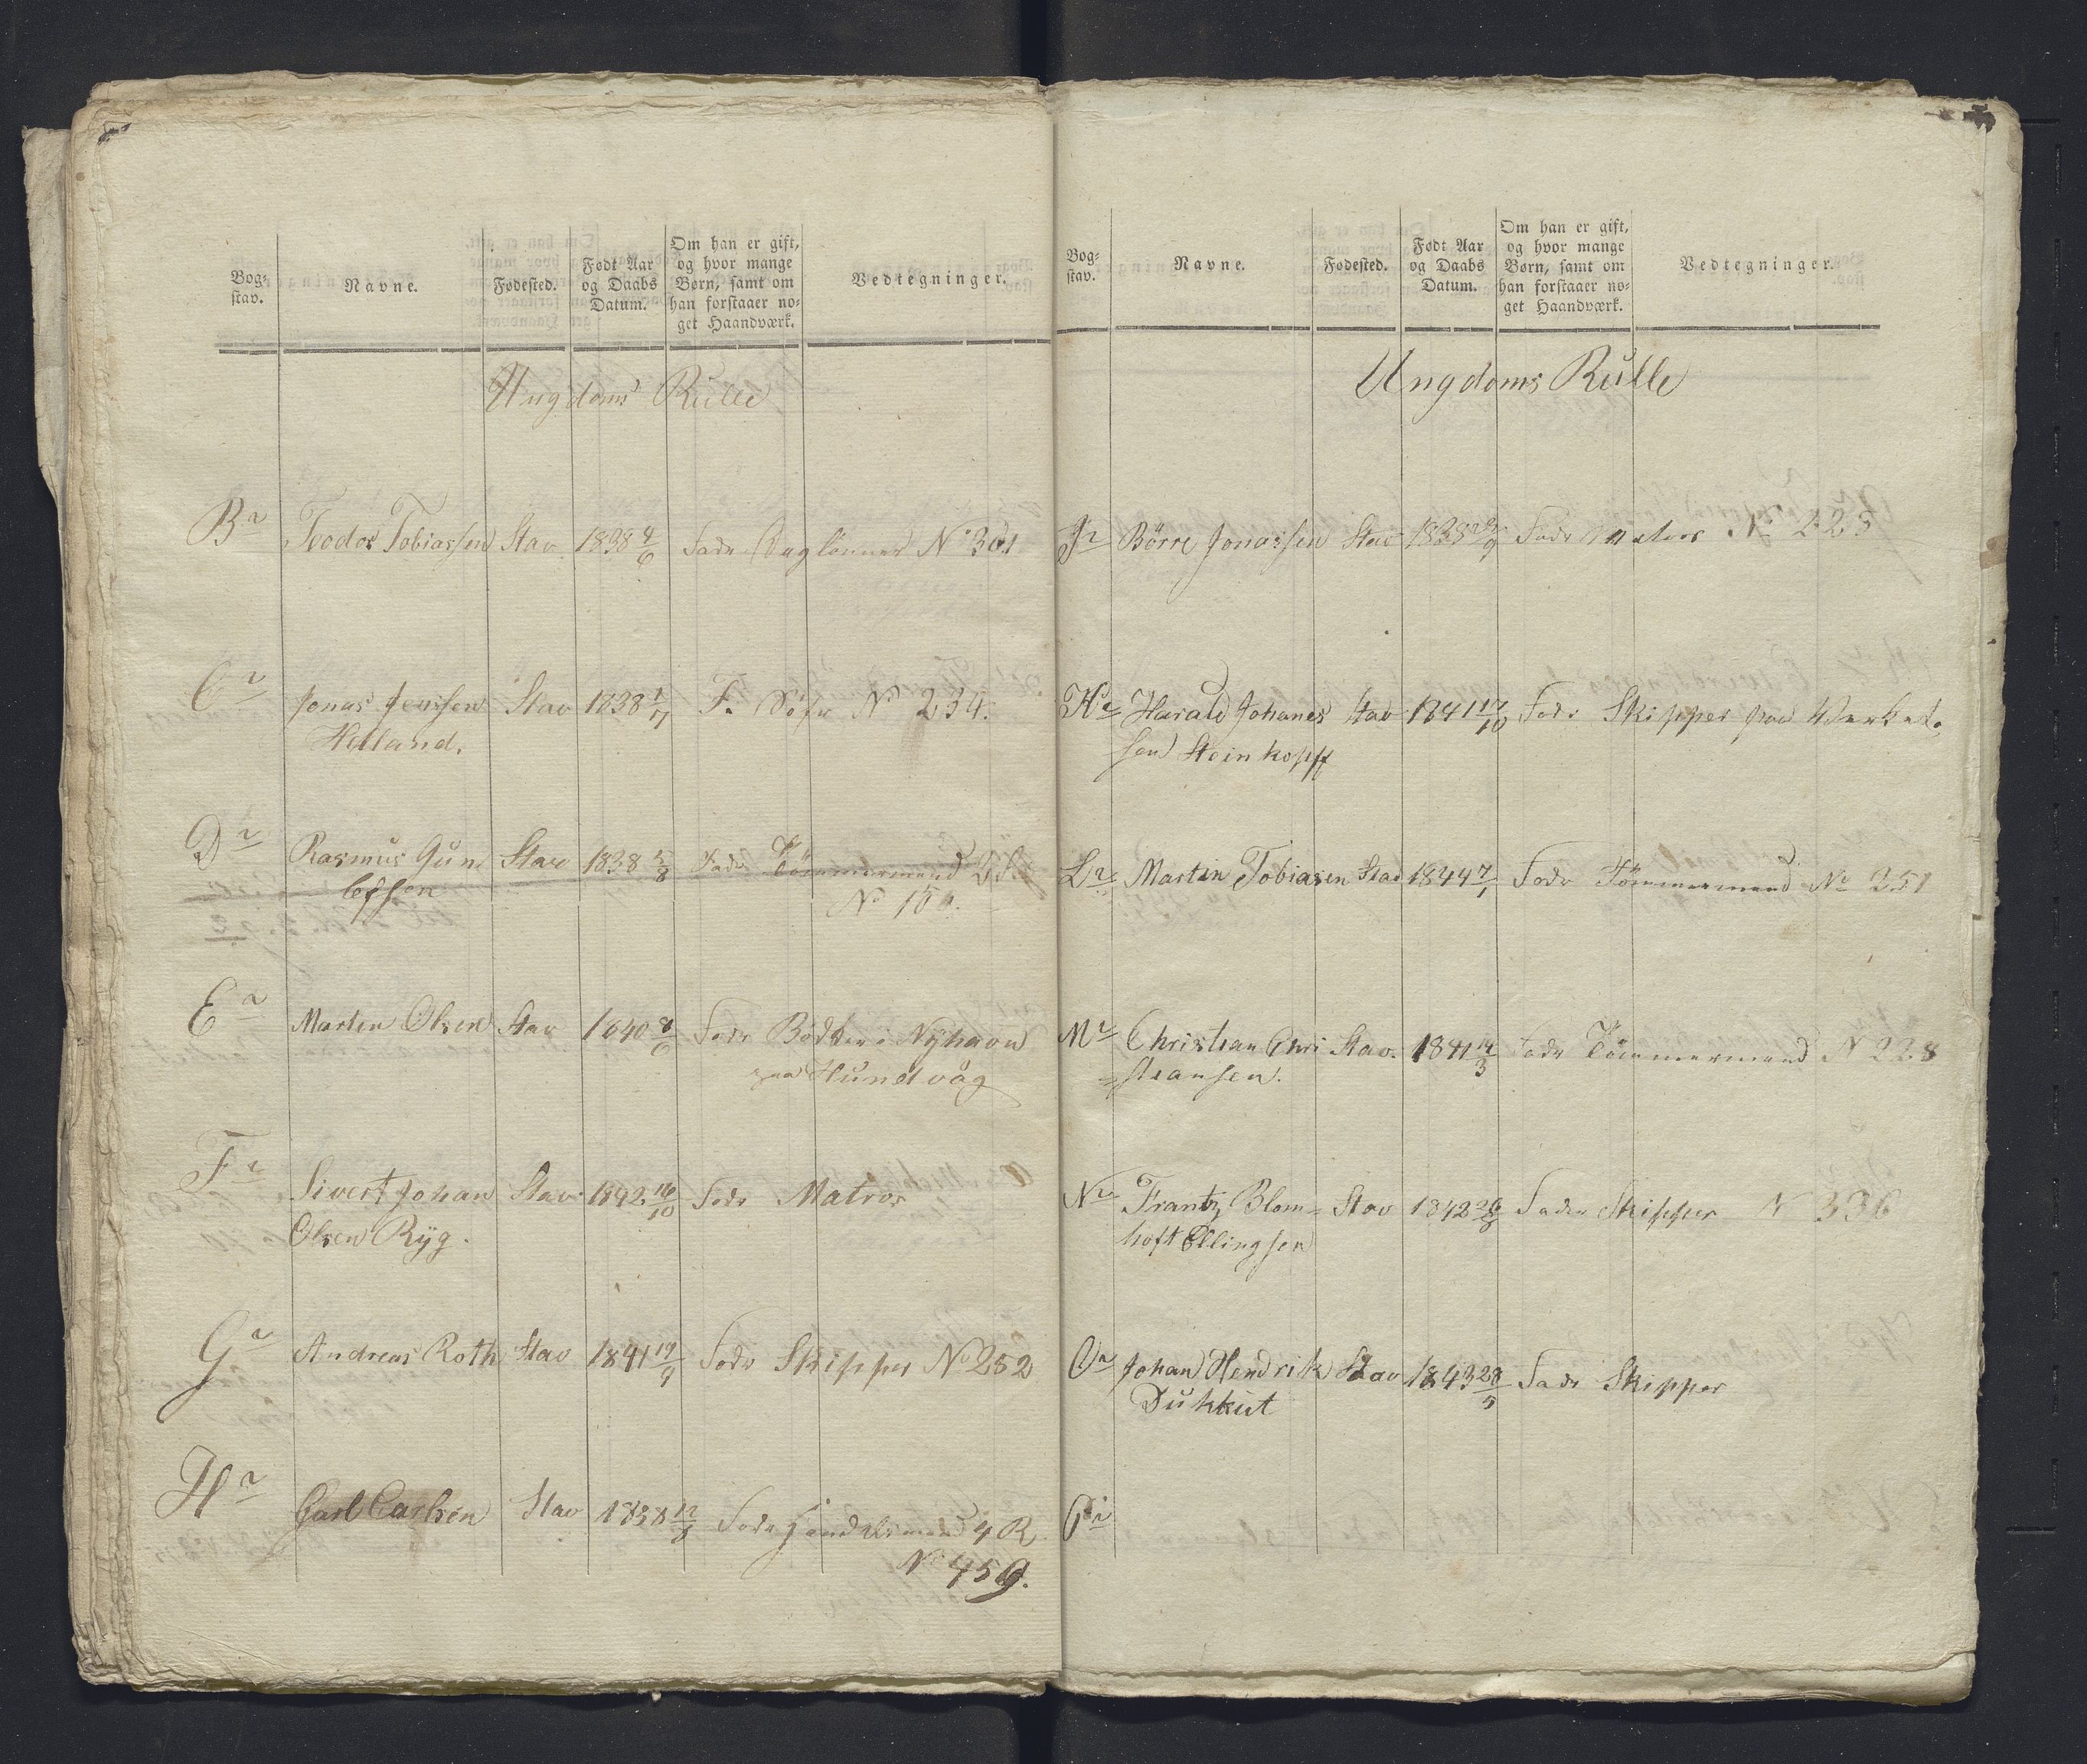 Bog-
stav.
Navne.
Fødested.
Født Aar
og Daabs
Datum.
Om han er gift,
og hvor mange
Børn, samt om
han forstaaer no-
get Haandværk.
Vedtegninger.
Ungdoms Rulle
B2 Teodor Tobiassen Stav 1838 4/6 Fadr Daglønner No 301
C2 Jonas Jenssen Stav 1838 1/7 F. No 234.
Helland.
D2 Rasmus Gun Stav 1838 5/8 Fadr Tömmermand
lefsen No
E2 Morten Olsen Stav 1840 8/6 Fadr Bödker i Nyhavn
paa Hundvåg
F2 Sivert Johan Stav 1842 16/10 Fadr Matros
Olsen Ryg.
G2 Andreas Roth Stav 1841 19/9 Fadr Skipper No 252
H2 Carl Carlsen Stav 1838 12/8 Fadr Handelsmand 4 R
No 459.
Bog-
stav.
Navne.
Fødested.
Født Aar
og Daabs
Datum.
Om han er gift,
og hvor mange
Børn, samt om
han forstaaer no-
get Haandværk.
Vedtegninger.
Ungdoms Rulle
J2 Börre Jonassen Stav 1838 Fadr Matros No 225
K2 Harald Johanes Stav 1841 17/10 Fadr Skipper paa
sen Steinkopff
L2 Martin Tobiasen Stav 1844 7/1 Fadr Tömmermand No 251
M2 Christian Chri Stav. 1841 14/3 Fadr Tömmermand N 228
=stiansen.
N2 Frantz Blom= Stav 1842 26/8 Fader Skipper N 336
hoft Ellingsen
O2 Johan Hendrik Stav 1843 28/5 Fadr Skipper
P2